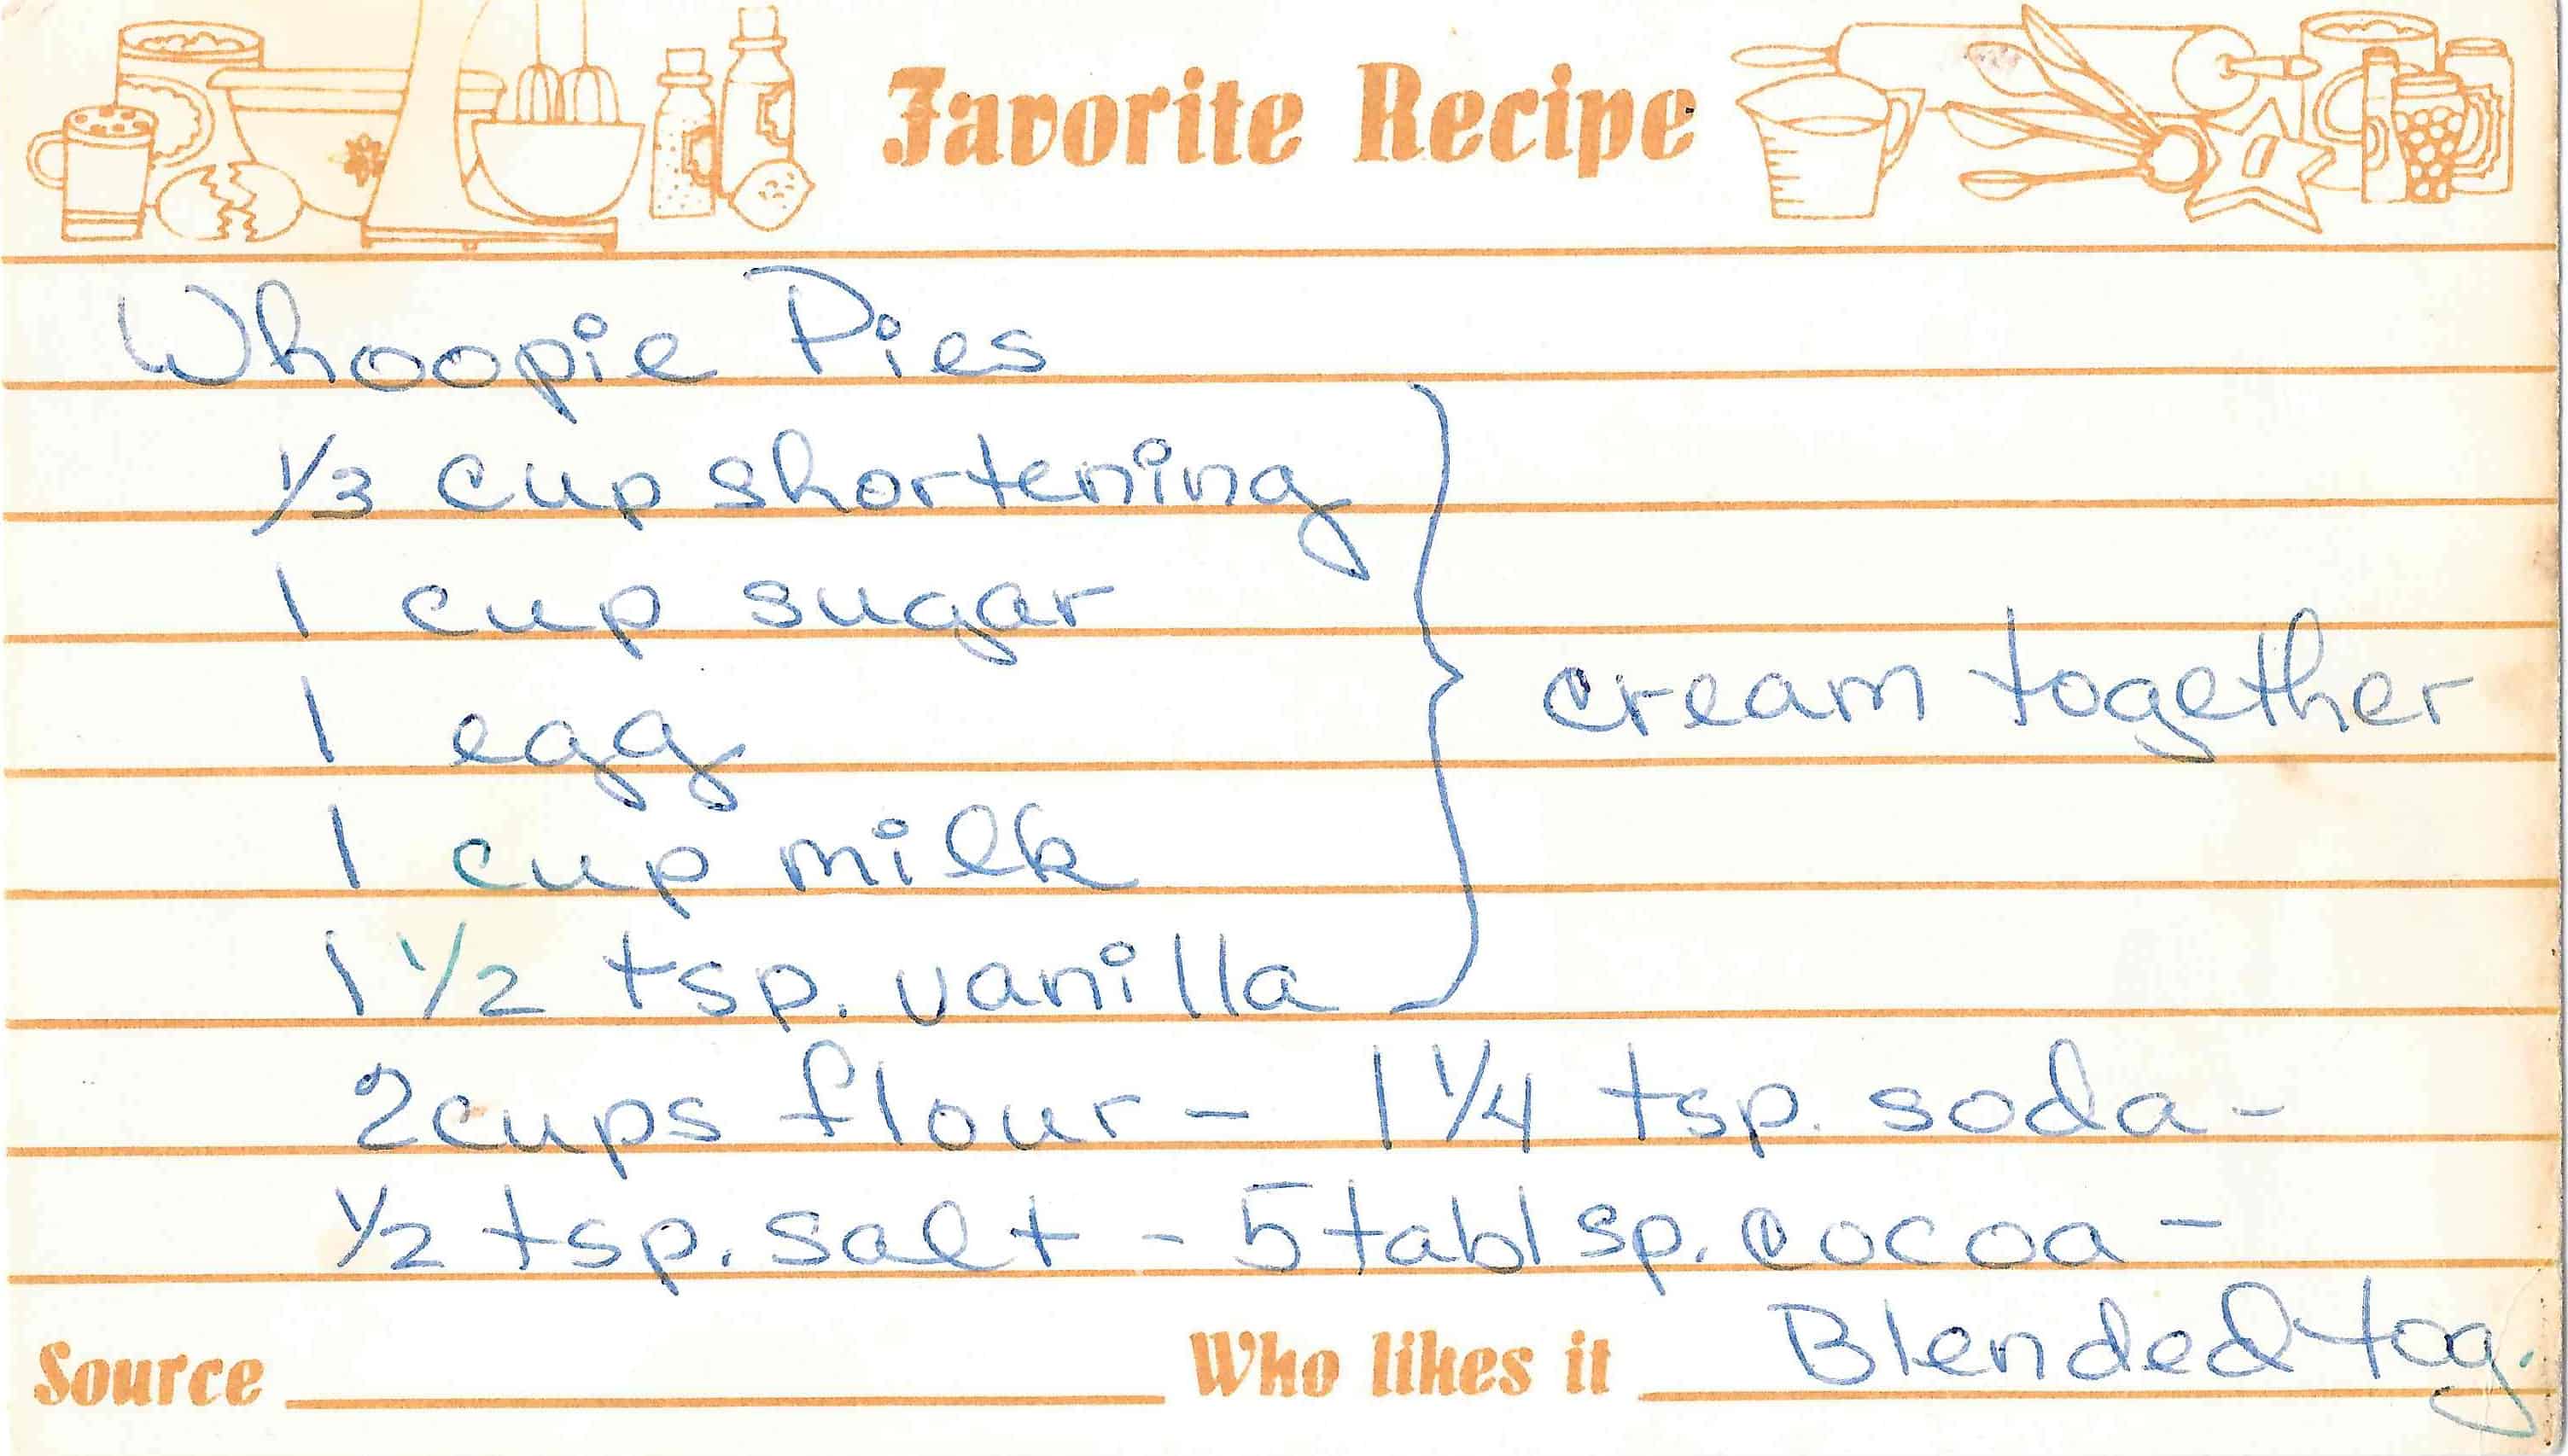 Favorite Recipe
Whoopie Pies
1/3 cup shortening
1 cup sugar
1 egg
cream together
1 cup milk
1 1/2 tsp. vanilla
2 cups flour - 1 1/4 tsp. soda -
1/2 tsp. salt - 5 tablsp. cocoa -
Blended tog.
Source Who likes it